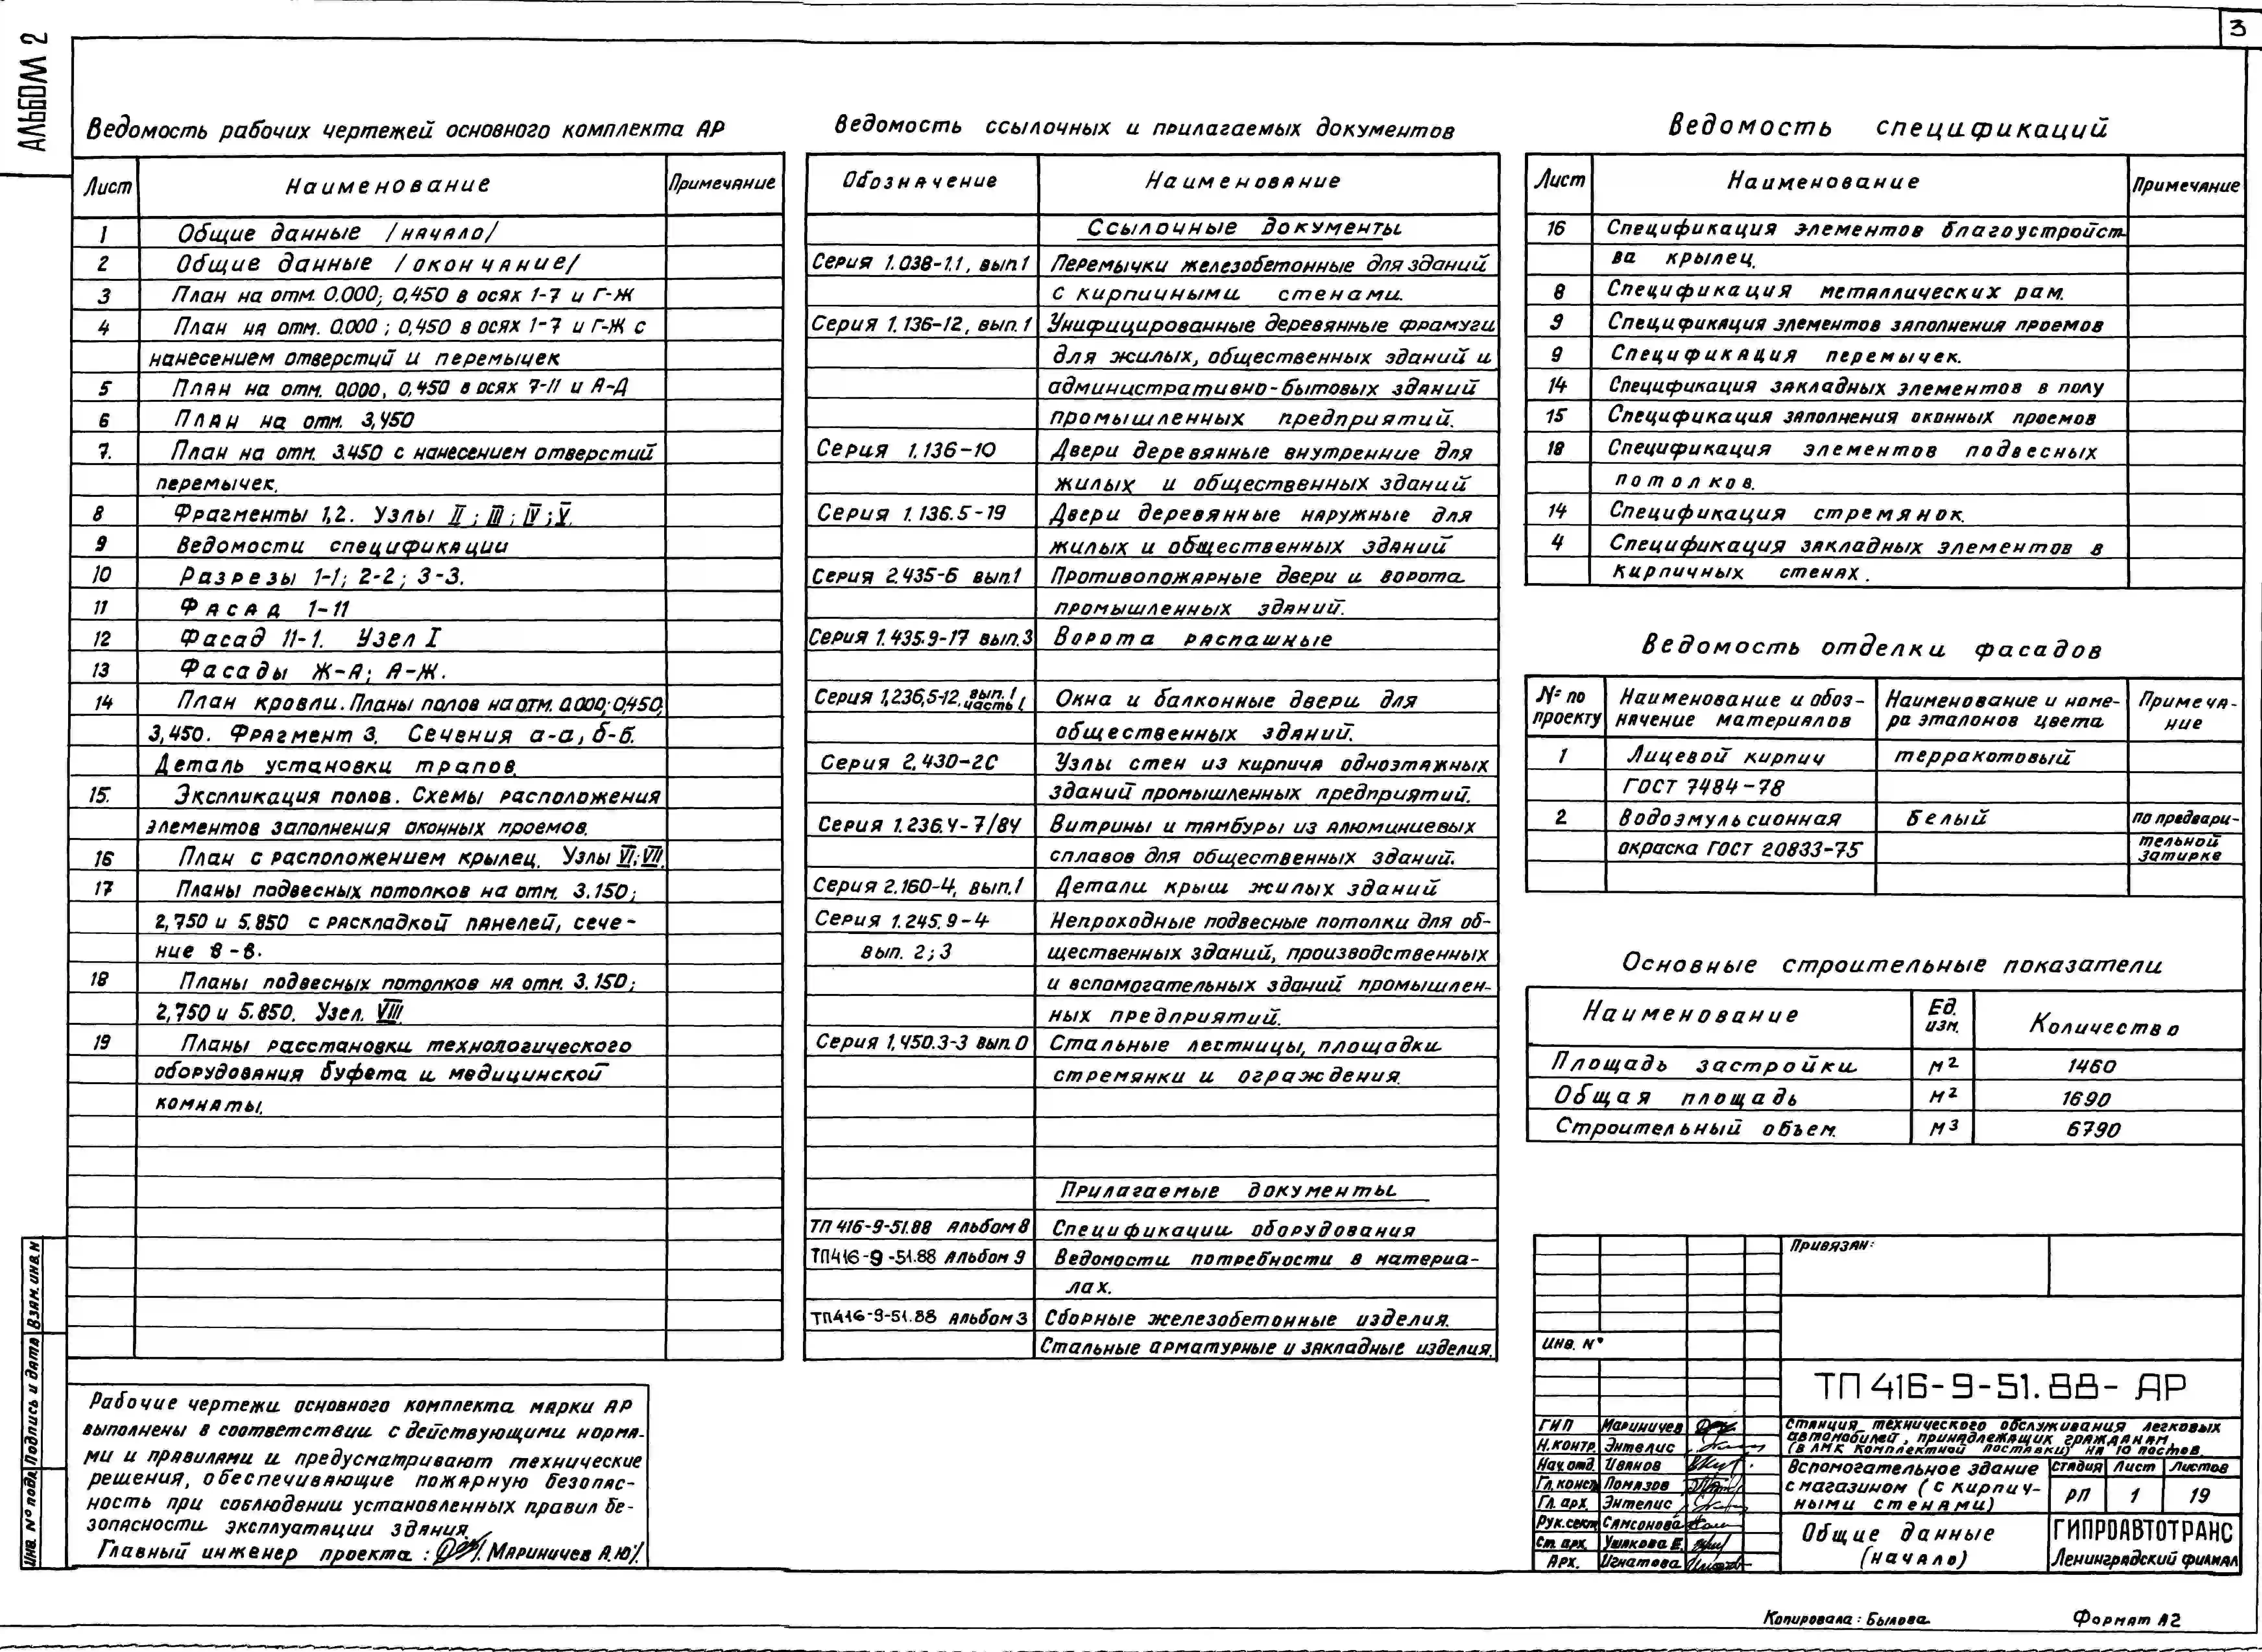 АЛЬБОМ 2
3
Ведомость рабочих чертежей основного комплекта АР
Лист Наименование Примечание
1 Общие данные /начало/
2 Общие данные /окончание/
3 План на отм. 0.000; 0,450 в осях 1-7 и Г-Ж
4 План на отм. 0.000; 0,450 в осях 1-7 и Г-Ж с
нанесением отверстий и перемычек
5 План на отм. 0.000, 0,450 в осях 7-11 и А-Д
6 План на отм. 3,450
7. План на отм. 3.450 с нанесением отверстий
перемычек.
8 Фрагменты 1,2. Узлы II; III; IV; V.
9 Ведомости спецификации
10 Разрезы 1-1; 2-2; 3-3.
11 Фасад 1-11
12 Фасад 11-1. Узел I
13 Фасады Ж-А; А-Ж.
14 План кровли. Планы полов на отм. 0.000; 0,450,
3,450. Фрагмент 3. Сечения а-а, б-б.
Деталь установки трапов.
15. Экспликация полов. Схемы расположения
элементов заполнения оконных проемов.
16 План с расположением крылец. Узлы VI; VII.
17 Планы подвесных потолков на отм. 3.150;
2,750 и 5.850 с раскладкой панелей, сече-
ние в-в.
18 Планы подвесных потолков на отм. 3.150;
2,750 и 5.850. Узел. VIII
19 Планы расстановки технологического
оборудования буфета и медицинской
комнаты.
Рабочие чертежи основного комплекта марки АР
выполнены в соответствии с действующими норма-
ми и правилами и предусматривают технические
решения, обеспечивающие пожарную безопас-
ность при соблюдении установленных правил бе-
зопасности эксплуатации здания
Главный инженер проекта: /Мариничев А.Ю/.
Ведомость ссылочных и прилагаемых документов
Обозначение Наименование
Ссылочные документы
Серия 1.038-1.1, вып1 Перемычки железобетонные для зданий
с кирпичными стенами.
Серия 1.136-12, вып.1 Унифицированные деревянные фрамуги
для жилых, общественных зданий и
административно-бытовых зданий
промышленных предприятий.
Серия 1.136-10 Двери деревянные внутренние для
жилых и общественных зданий
Серия 1.136.5-19 Двери деревянные наружные для
жилых и общественных зданий
Серия 2.435-6 вып.1 Противопожарные двери и ворота
промышленных зданий.
Серия 1.435.9-17 вып.3 Ворота распашные
Серия 1,236,5-12, вып.1 часть 1 Окна и балконные двери для
общественных зданий.
Серия 2.430-2С Узлы стен из кирпича одноэтажных
зданий промышленных предприятий.
Серия 1.236.4-7/84 Витрины и тамбуры из алюминиевых
сплавов для общественных зданий.
Серия 2.160-4, вып.1 Детали крыш жилых зданий
Серия 1.245.9-4 Непроходные подвесные потолки для об-
вып. 2;3 щественных зданий, производственных
и вспомогательных зданий промышлен-
ных предприятий.
Серия 1,450.3-3 вып.0 Стальные лестницы, площадки
стремянки и ограждения.
Прилагаемые документы
ТП 416-9-51.88 Альбом 8 Спецификации оборудования
ТП416-9-51.88 Альбом 9 Ведомости потребности в материа-
лах.
ТП416-9-51.88 Альбом 3 Сборные железобетонные изделия.
Стальные арматурные и закладные изделия.
Ведомость спецификаций
Лист Наименование Примечание
16 Спецификация элементов благоустройст-
ва крылец.
8 Спецификация металлических рам.
9 Спецификация элементов заполнения проемов
9 Спецификация перемычек.
14 Спецификация закладных элементов в полу
15 Спецификация заполнения оконных проемов
18 Спецификация элементов подвесных
потолков.
14 Спецификация стремянок.
4 Спецификация закладных элементов в
кирпичных стенах.
Ведомость отделки фасадов
№ по Наименование и обоз- Наименование и номе- Примеча-
проекту начение материалов ра эталонов цвета ние
1 Лицевой кирпич терракотовый
ГОСТ 7484-78
2 Водоэмульсионная Белый по предвари-
окраска ГОСТ 20833-75 тельной
затирке
Основные строительные показатели
Наименование Ед. изм. Количество
Площадь застройки м2 1460
Общая площадь м2 1690
Строительный объем. м3 6790
Привязан:
Инв. №
ТП 416-9-51.88- АР
Станция технического обслуживания легковых
автомобилей, принадлежащих гражданам
(в ЛМК комплектной поставки) на 10 постов
ГИП Мариничев
Н.контр. Энтелис
Нач.отд. Иванов
Гл.конст. Помазов
Гл. арх. Энтелис
Рук.сект. Самсонова
Ст. арх. Ушакова Е.
Арх. Игнатова
Вспомогательное здание
с магазином (с кирпич-
ными стенами)
Стадия Лист Листов
РП 1 19
Общие данные
(начало)
ГИПРОАВТОТРАНС
Ленинградский филиал
Взам. инв.N
Подпись и дата
Инв. № подл.
Копировала: Былова
Формат А2